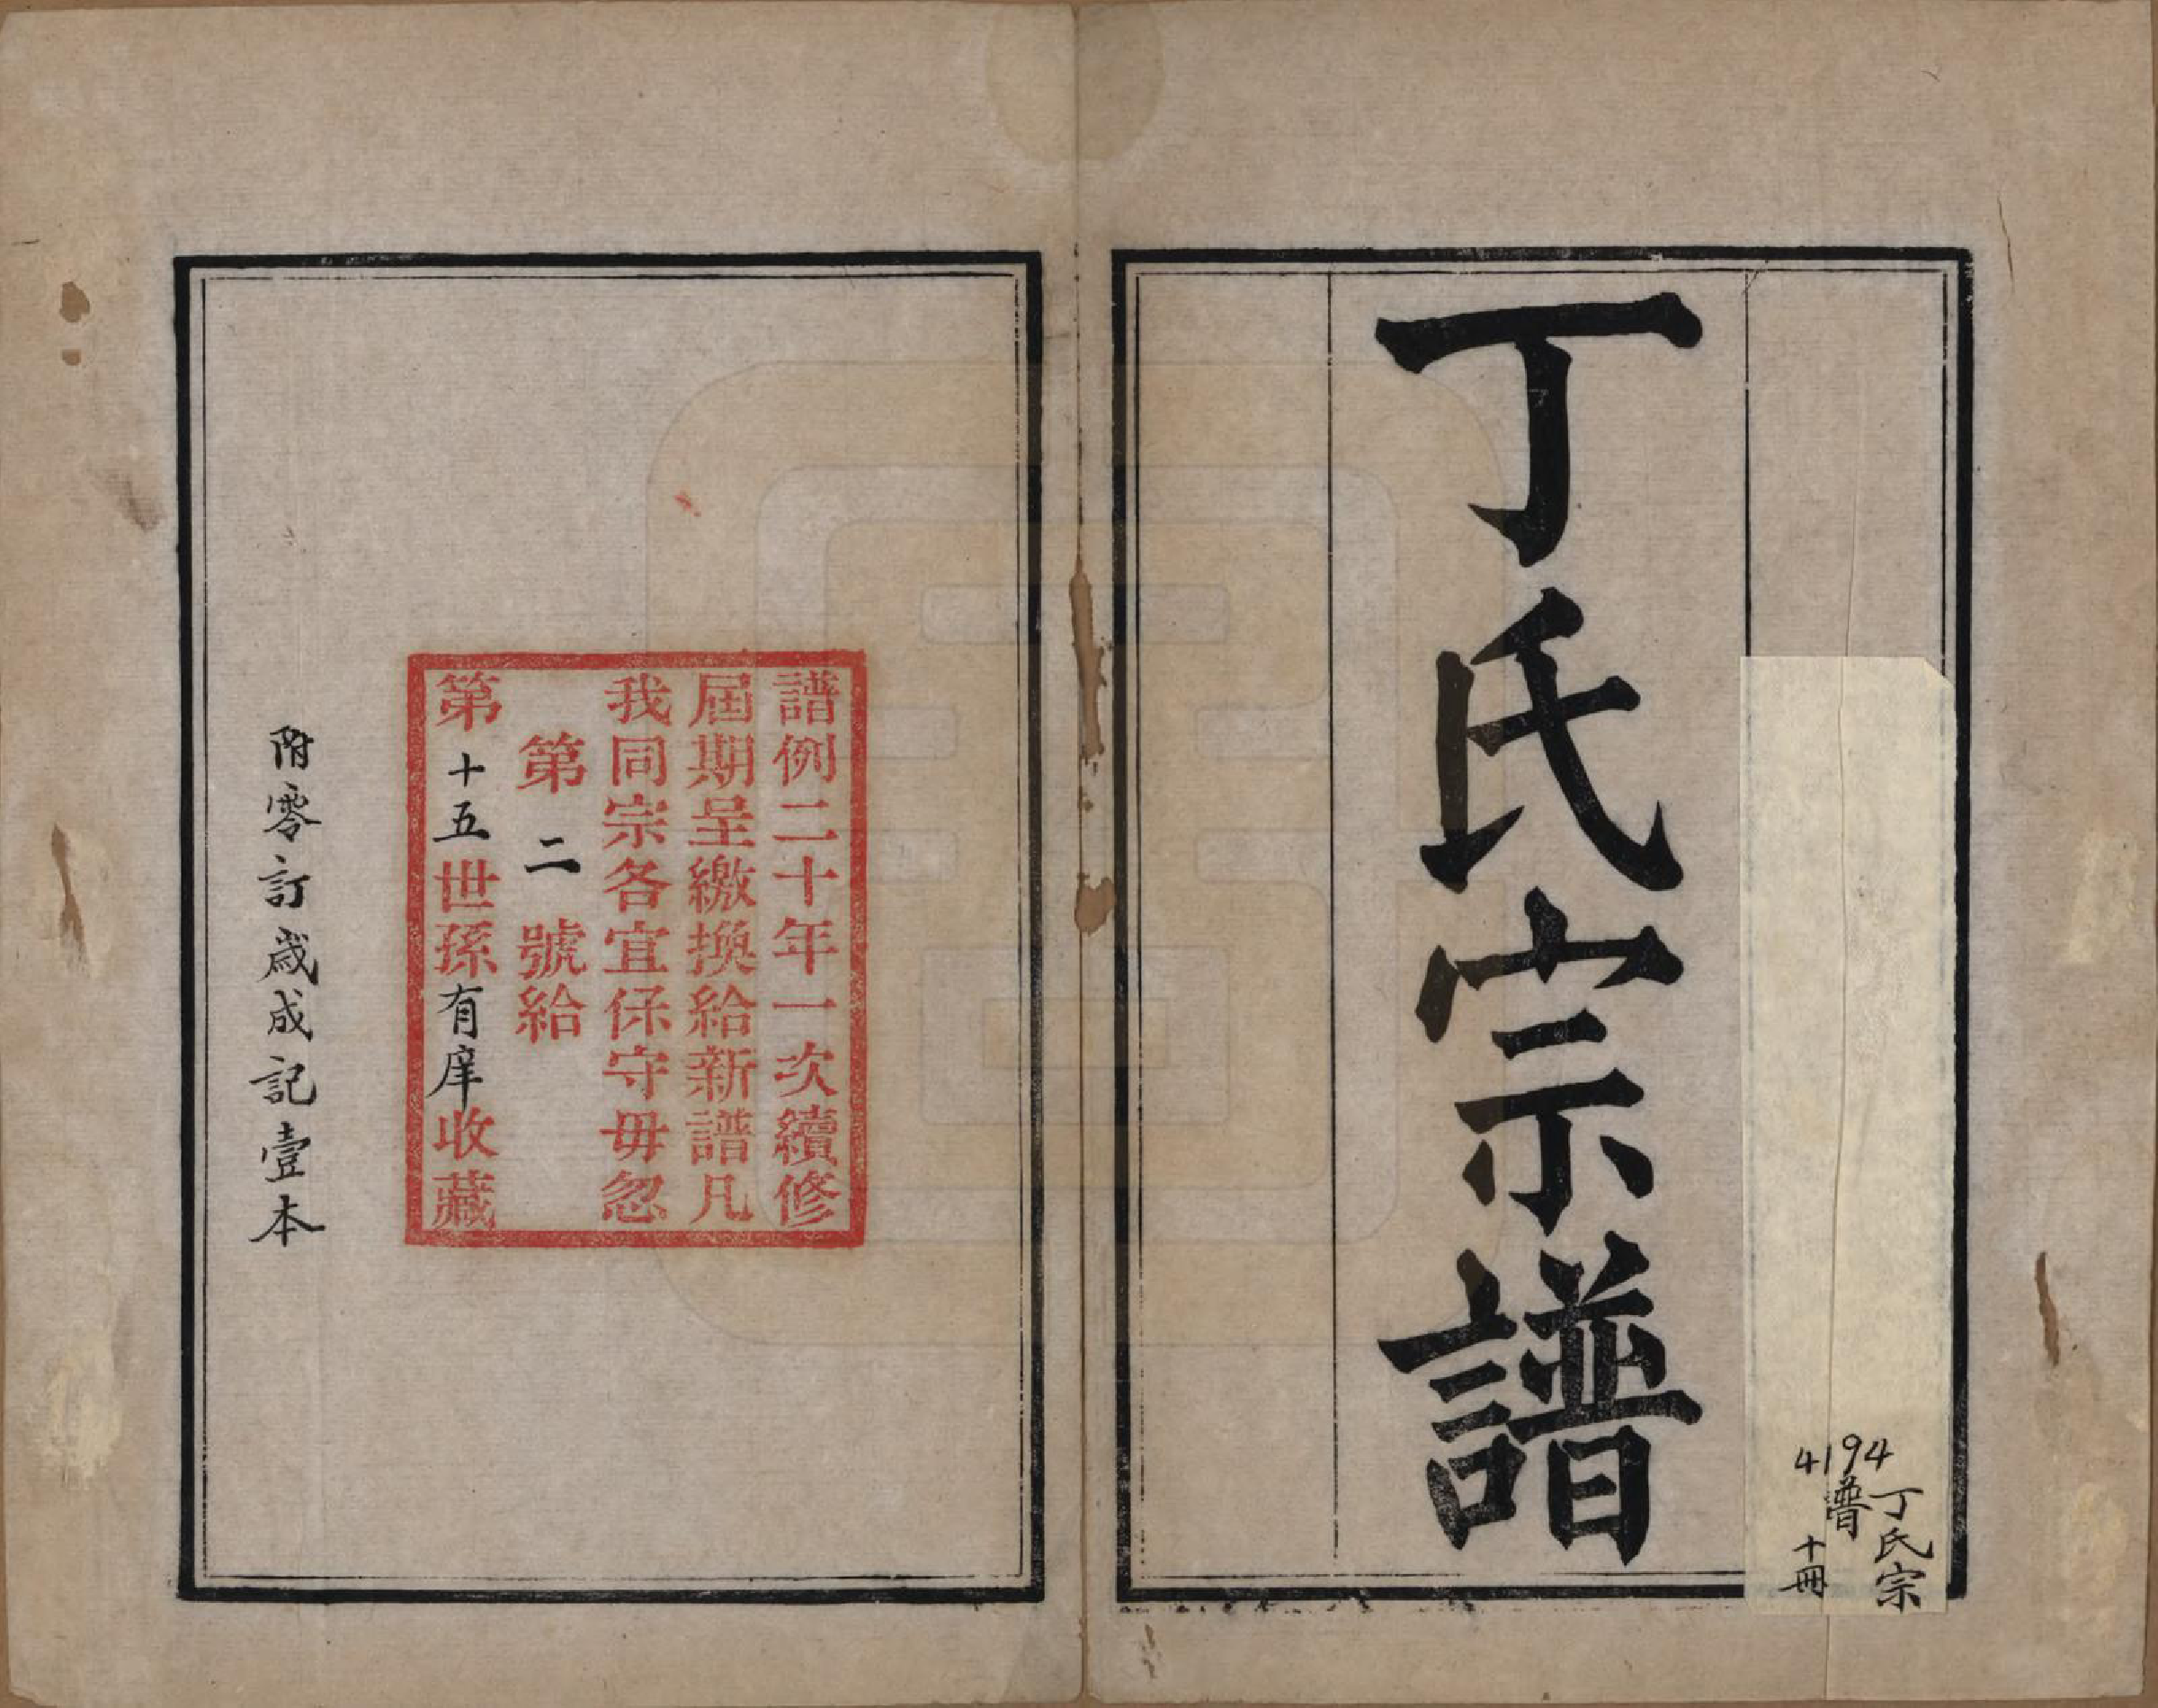 丁氏宗譜
4194
丁氏宗
譜
十冊
譜例二十年一次續修
屆期呈繳換給新譜凡
我同宗各宜保守毋忽
第二號給
第十五世孫有庠收藏
附零訂歲成記壹本